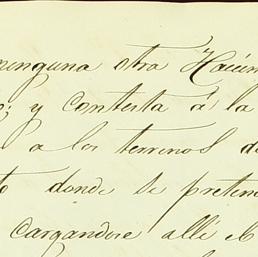 ninguna otra Hacien
y contesta á la
a los terrenos d
to donde se preten
cargandose alli el